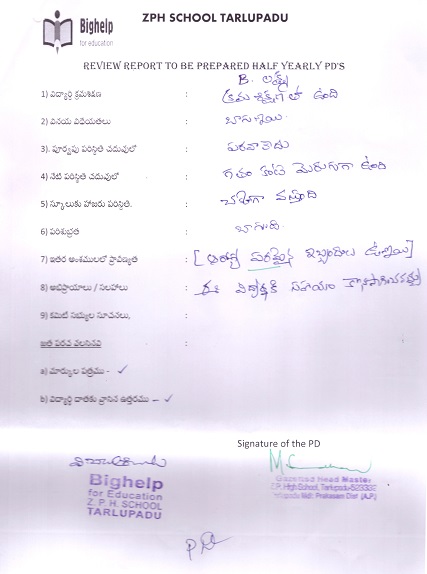 Bighelp
for education
ZPH SCHOOL TARLUPADU
REVIEW REPORT TO BE PREPARED HALF YEARLY PD'S
B. లక్ష్మి
1) విద్యార్థి క్రమశిక్షణ : క్రమ శిక్షణ తో ఉంది
2) వినయ విధేయతలు : బాగున్నాయి
3). పూర్వపు పరిస్థితి చదువులో : పరవాలేదు
4) నేటి పరిస్థితి చదువులో : గతం కంటే మెరుగుగా ఉంది
5) స్కూలుకు హాజరు పరిస్థితి. : చక్కగా వస్తుంది
6) పరిశుభ్రత : బాగుంది
7) ఇతర అంశములలో ప్రావీణ్యత : [ఆరోగ్య పరమైన ఇబ్బందులు ఉన్నాయి]
8) అభిప్రాయాలు / సలహాలు : ఈ విద్యార్థికి సహాయం
9) కమిటీ సభ్యుల సూచనలు, :
జత పరచ వలసినవి
a) మార్కుల పత్రము - ✓
b) విద్యార్థి దాతకు వ్రాసిన ఉత్తరము - ✓
Signature of the PD
Bighelp
for Education
Z. P. H. SCHOOL
TARLUPADU
Gazetted Head Master
Z.P. High School, Tarlupadu-523332
Tarlupadu Mdl: Prakasam Dist (A.P.)